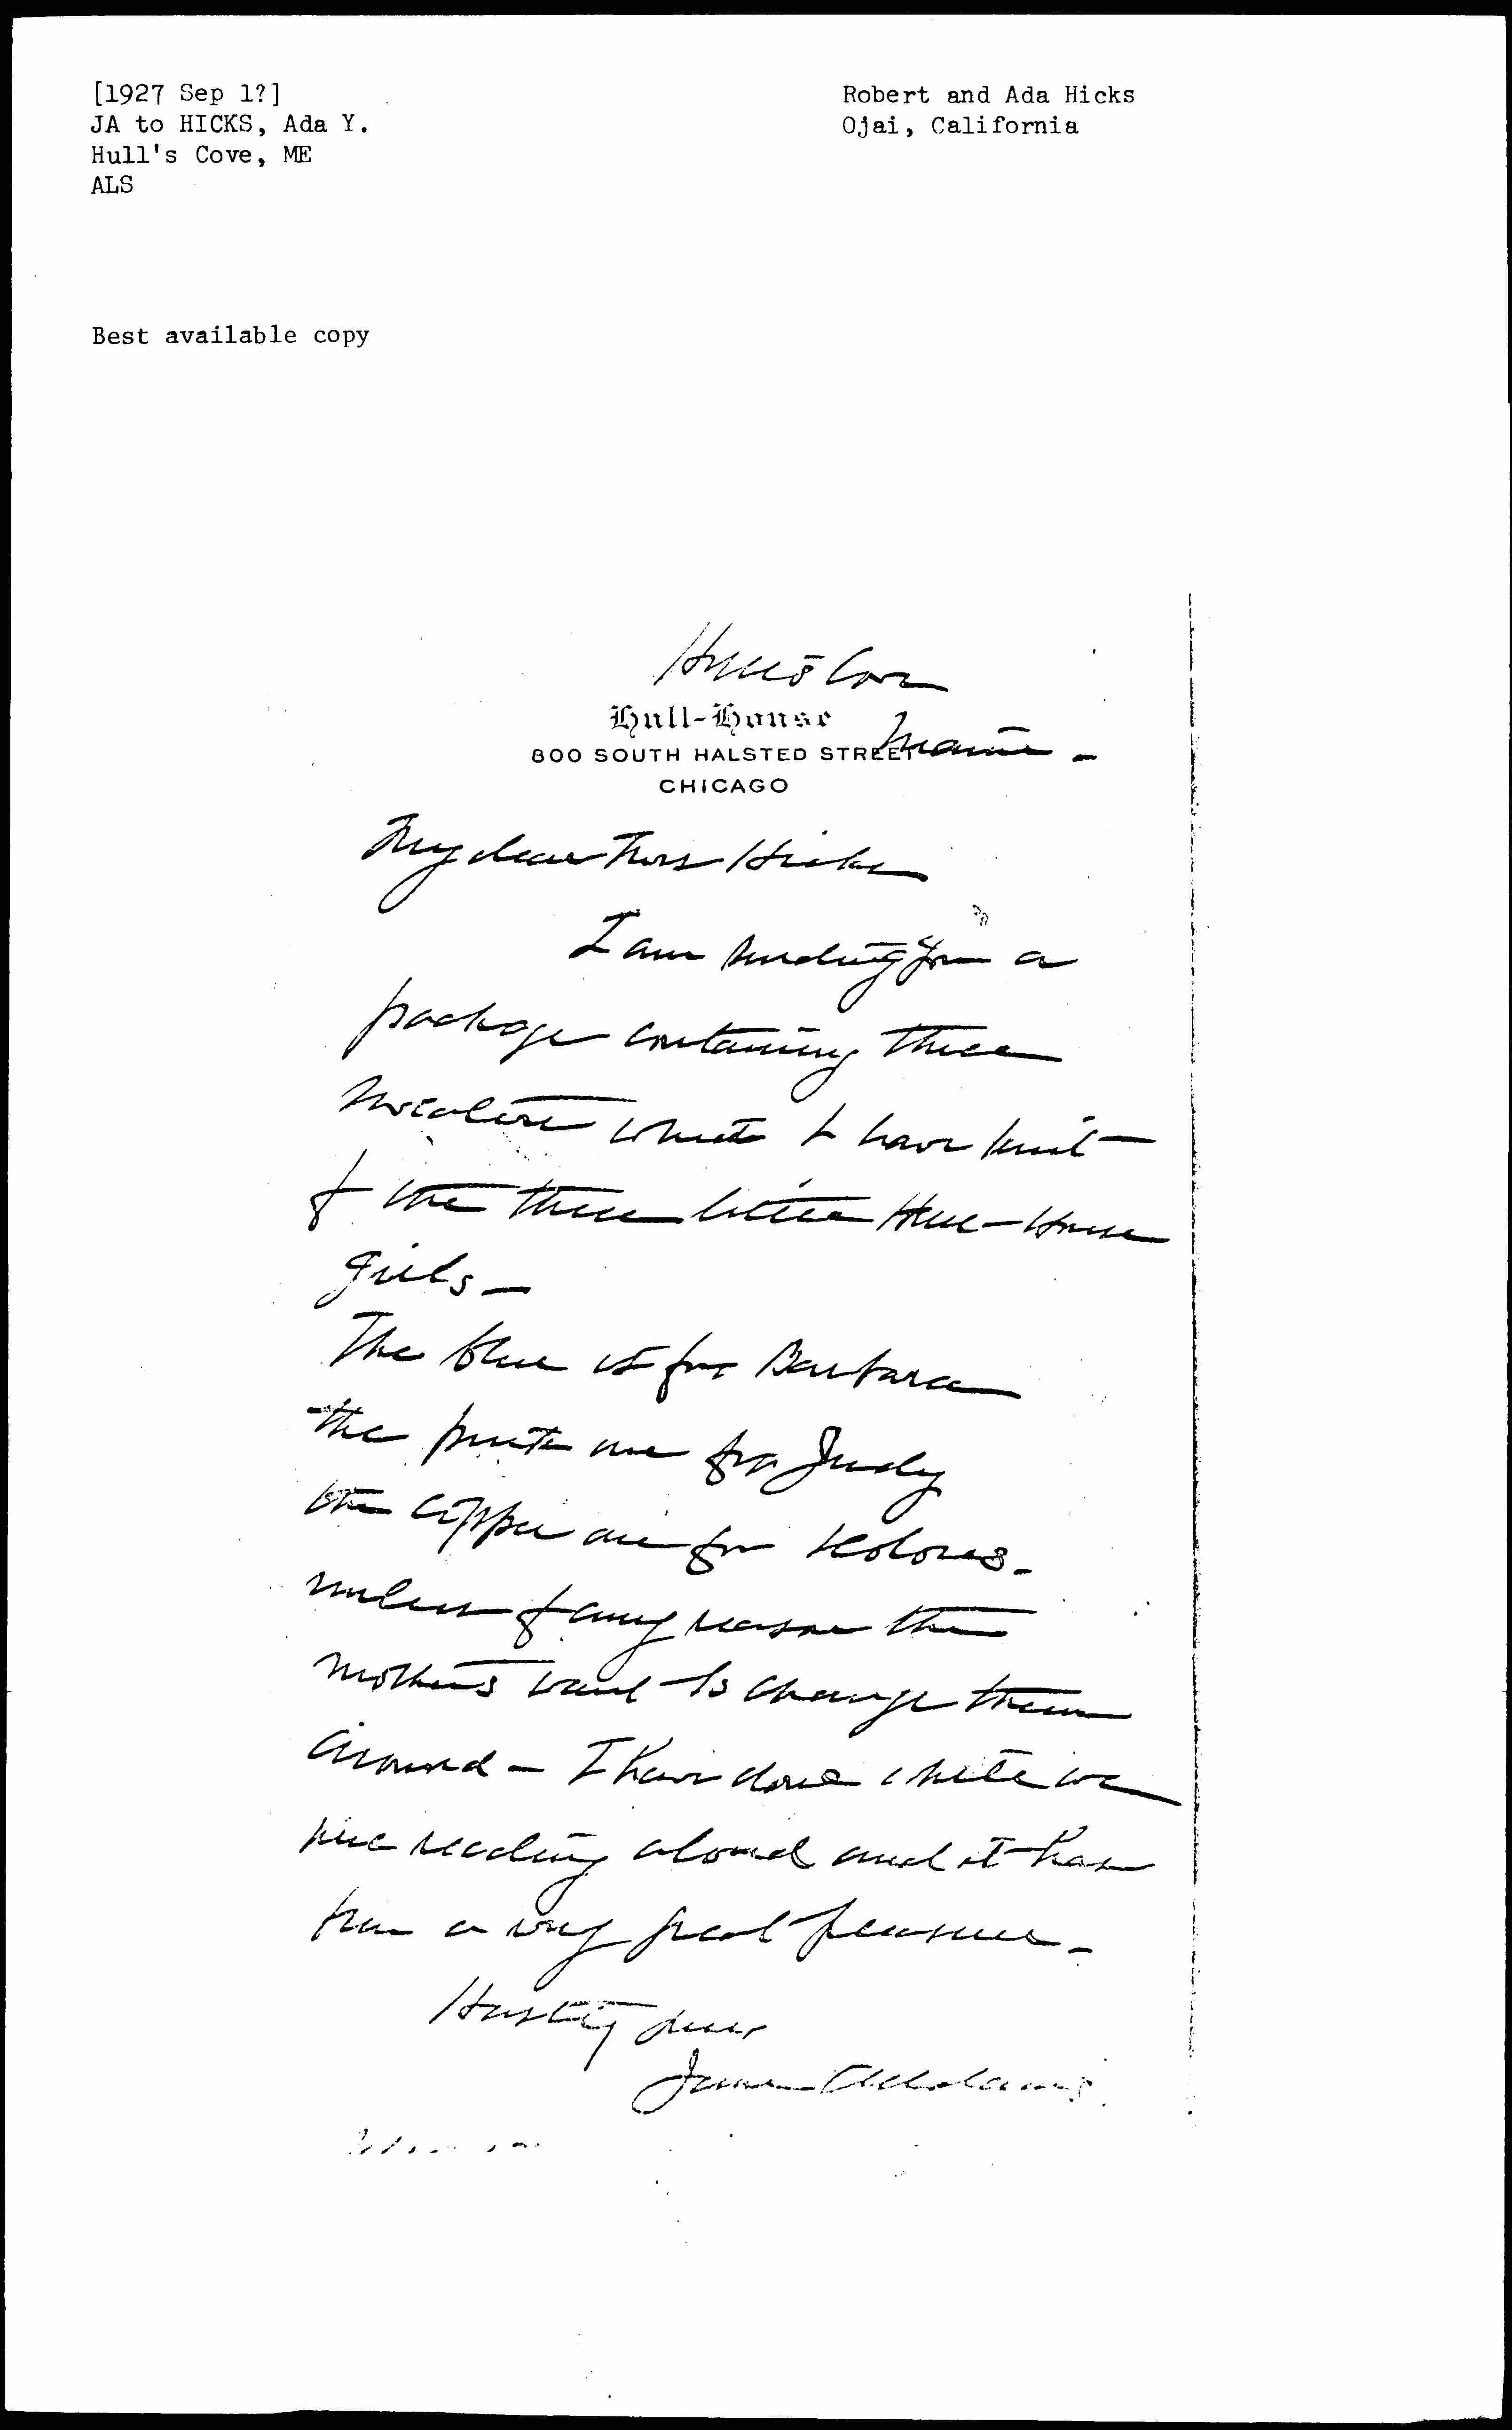 [1927 Sep 1?]
JA to HICKS, Ada Y.
Hull's Cove, ME
ALS
Robert and Ada Hicks
Ojai, California
Best available copy
Hull's Cove
Hull-House
Maine -
800 SOUTH HALSTED STREET
CHICAGO
My dear Mrs Hicks
I am sending you a
package containing three
sweaters which I have knit
for the three little Hull-House
girls -
The blue is for Barbara
the pink one for Judy
the copper one for Dolores -
unless for any reason the
mothers want to change them
around - I have done while we
were reading aloud and it has
been a very great pleasure -
Hastily yours
Jane Addams